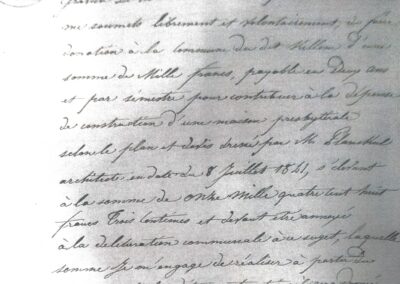 me soumets librement et volontairement, à faire
donation à la commune du dit Killem d'une
somme de Mille francs, payable en Deux ans
et par semestre pour contribuer à la dépense
de construction d'une maison presbytérale
selon le plan et devis dressé par Mr
architecte en date du 8 Juillet 1841, s'élevant
à la somme de onze Mille quatre cent huit
francs Trois Centimes et devant être annexé
à la délibération communale à ce sujet, laquelle
somme Je m'engage de réaliser à partir du